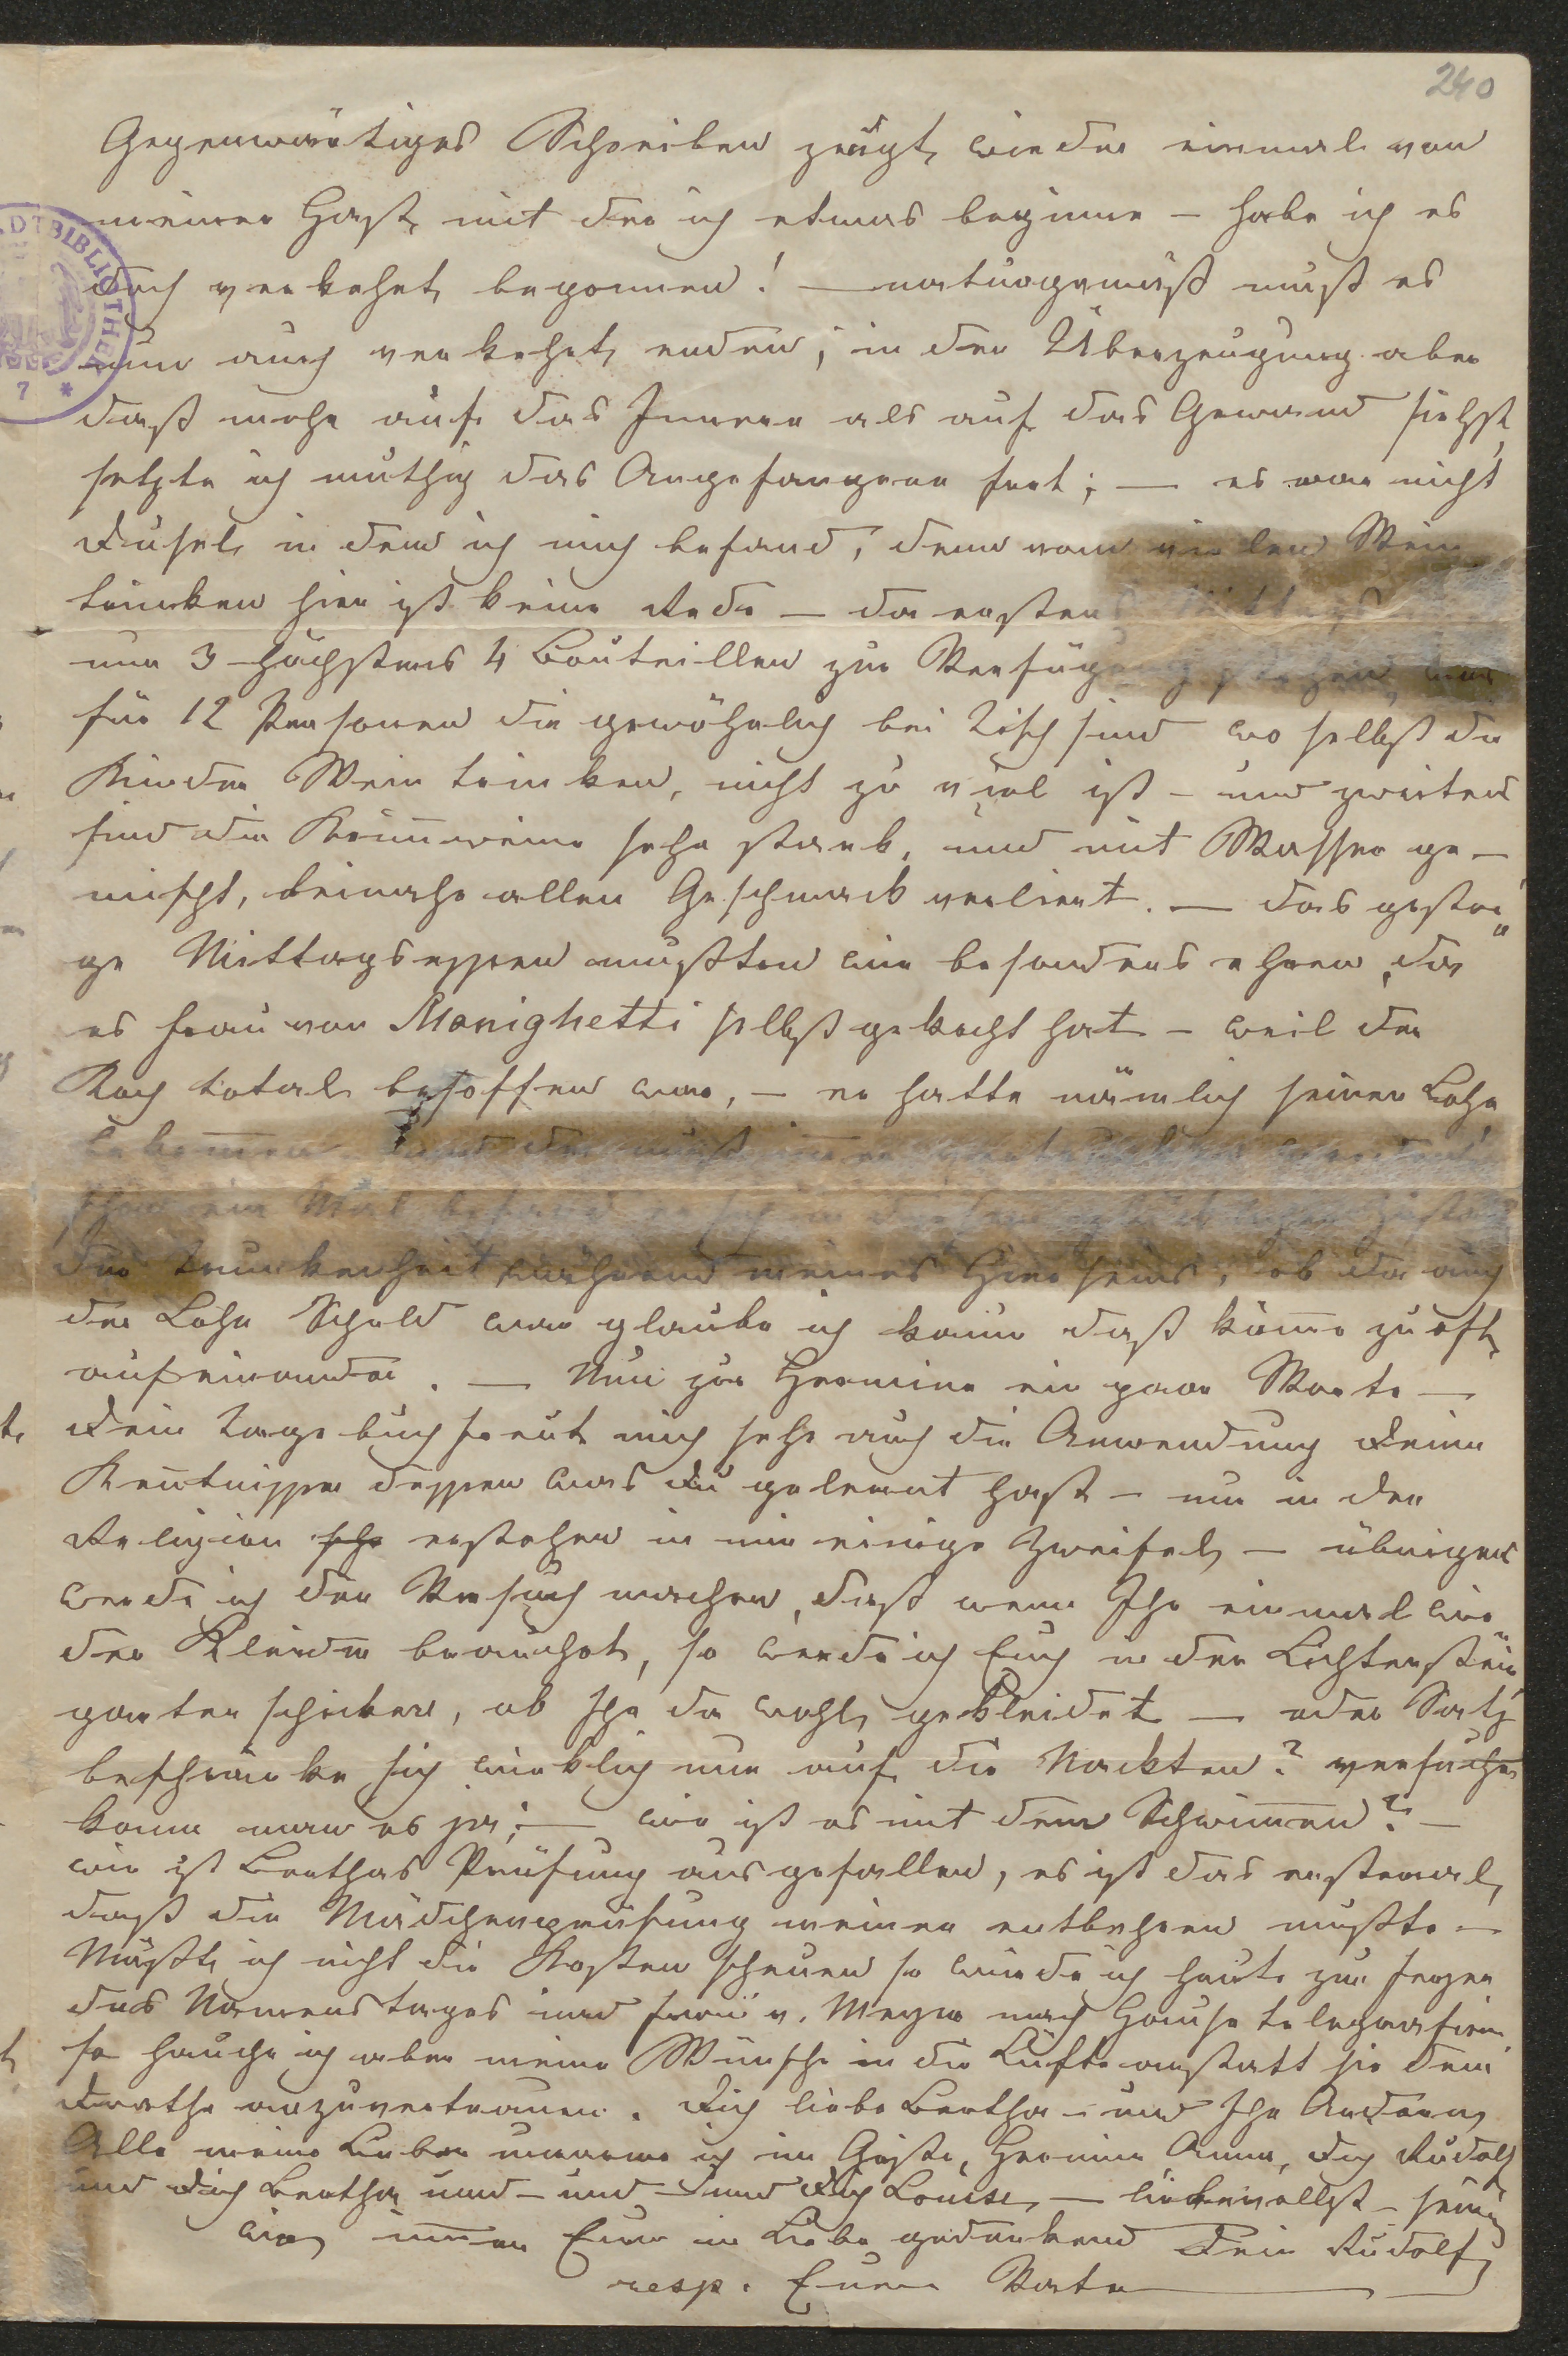 240
Gegenwärtiges Schreiben zeugt wieder einmal von
meiner Hast mit der ich etwas beginne – habe ich es
doch verkehrt begonnen! – naturgemäß muß es
nun auch verkehrt enden; in der Überzeugung aber
daß mehr auf das Innere als auf das Gewand siehst,
setzte ich muthig das Angefangene fort; – es war nicht
Dusel in dem ich mich befand, denn vom vielen Wein
trinken hier ist keine Rede – da erstens Mittags
nur 3 höchstens 4 Bouteillen zur Verfügung stehen, was
für 12 Personen die gewöhnlich bei Tisch sind wo selbst die
Kinder Wein trinken, nicht zu viel ist – und zweitens
sind die Krim̅weine sehr stark, und mit Wasser ge-
mischt, beinahe allen Geschmack verliert. – das gestri„
ge Mittagsessen mußten wir besonders ehren, da
es Frau von Monighetti selbst gekocht hat – weil der
Koch total besoffen war, – er hatte nämlich seinen Lohn
bekom̅en und der muß im̅er werden
schon ein Mal befand er sich in diesem Zustand
der Trunkenheit während meines Hierseins, ob da auch
der Lohn Schuld war glaube ich kaum daß käme zu oft
aufeinander. – Nun zur Hermine ein paar Worte –
Dein Tagebuch freut mich sehr auch die Anwendung Deiner
Ken̅tnisse dessen was Du gelernt hast – nur in der
Religion erstehen in mir einige Zweifel – übrigens
werde ich den Versuch machen, daß wenn Ihr einmal wie„
der Kleider brauchet, so werde ich Euch in den Lichtenstein
garten schicken, ob Ihr da wohl gekleidet – oder Satz
beschränke sich wirklich nur auf die Nackten? versuchen
kann man es ja; – wie ist es mit dem Schwim̅en? –
wie ist Berthas Prüfung ausgefallen, es ist das erstemal,
daß die Mädchenprüfung meiner entbehren mußte –
Müßte ich nicht die Kosten scheuen so würde ich heute zur Feyer
des Namenstages und Frau v. Meyer nach Hause telegrafiren
so hauche ich aber meine Wünsche in die Lüfte anstatt sie dem
Drathe anzuvertrauen. Dich liebe Bertha – und Ihr Andern
Alle meine Lieben umarme ich im Geiste, Hermine Anna, Dich Rudolf
und Dich Bertha und – und – und Dich Louise – liebevollst –
wie im̅er Eurer in Liebe gedenkend Dein Rudolf
resp. Euer Vater